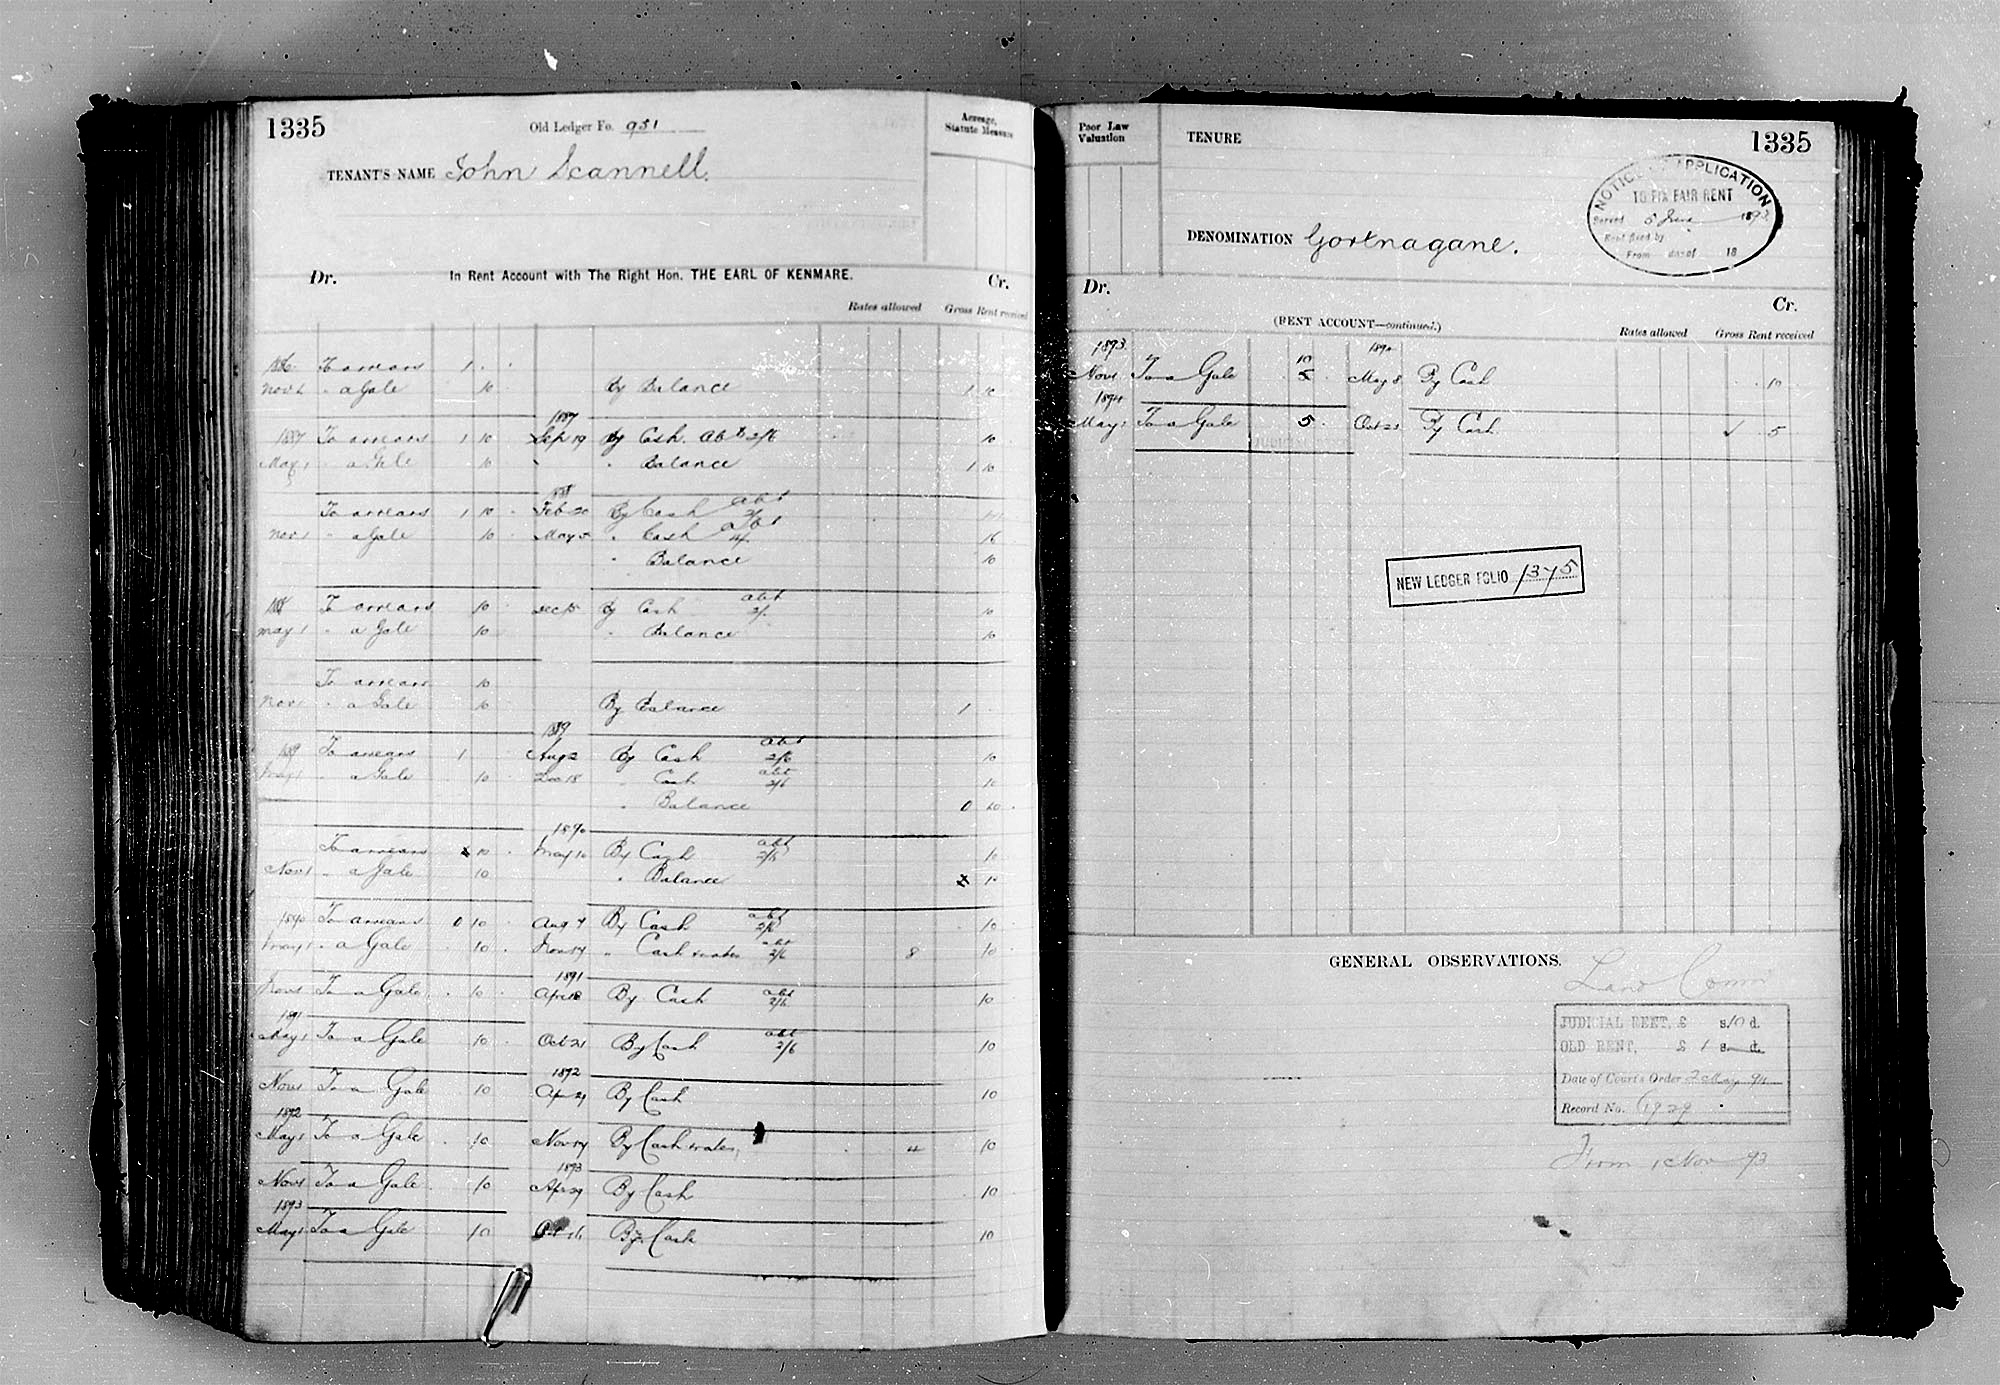 1335
Old Ledger Fo. 951
Acreage, Statute Measure
TENANT'S NAME John Scannell.
Dr. In Rent Account with The Right Hon. THE EARL OF KENMARE. Cr.
Rates allowed Gross Rent received
1886 To arrears 1 . .
Nov 1 " a Gale 10 By Balance 1 10
1887
1887 To arrears 1 10 Sep 19 By Cash abt 2/6 10
May 1 " a Gale 10 " Balance 1 10
1888 abt
To arrears 1 10 Feb 20 By Cash
Nov 1 " a Gale 10 May " Cash abt 4/ 16
" Balance 10
1888 To arrears 10 Dec 15 By Cash abt 2/ 10
May 1 " a Gale 10 " Balance 10
To arrears 10
Nov 1 " a Gale 10 By Balance 1
1889
1889 To arrears 1 Aug 2 By Cash abt 2/6 10
May 1 " a Gale 10 Dec 18 " Cash abt 2/6 10
" Balance 0 10
1890
To arrears 10 May 10 By Cash abt 2/6 10
Nov 1 " a Gale 10 " Balance 10
1890 To arrears 0 10 Aug 7 By Cash abt 2/6 10
May 1 " a Gale 10 Nov 17 " Cash & rates abt 2/6 8 10
1891
Nov 1 To a Gale 10 Apr 18 By Cash abt 2/6 10
1891
May 1 To a Gale 10 Oct 21 By Cash abt 2/6 10
1892
Nov 1 To a Gale 10 Apr 29 By Cash 10
1892
May 1 To a Gale 10 Nov 17 By Cash & rates 4 10
1893
Nov 1 To a Gale 10 Apr 29 By Cash 10
1893
May 1 To a Gale 10 Oct 16 By Cash 10
Poor Law Valuation
TENURE
1335
NOTICE OF APPLICATION
TO FIX FAIR RENT
Served 5 June 1893
Rent fixed by
From day of 18
DENOMINATION Gortnagane.
Dr. Cr.
(RENT ACCOUNT—continued.)
Rates allowed Gross Rent received
1893 1894
Nov 1 To a Gale 10 5 May 8 By Cash 10
1894
May 1 To a Gale 5 Oct 21 By Cash √ 5
NEW LEDGER FOLIO 1375
GENERAL OBSERVATIONS.
Land Comn
JUDICIAL RENT, £ s/0 d.
OLD RENT, £ 1 s. d.
Date of Court's Order 2 May 94
Record No. 1929
From 1 Nov 93